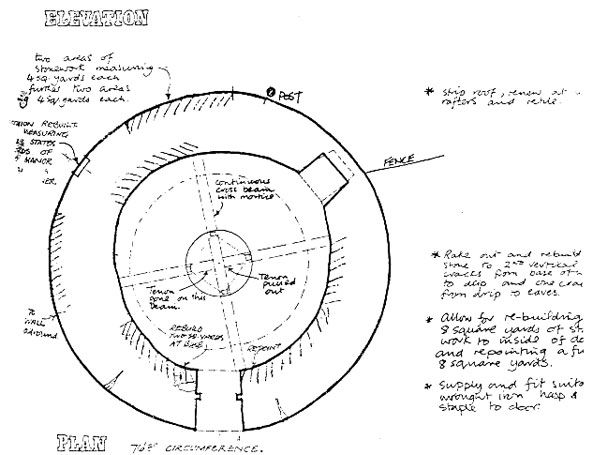 ELEVATION
two areas of
stonework measuring
4 sq. yards each
further two areas
4 sq. yards each.
POST
* strip roof, renew
rafters and
REBUILT
MEASURING
STATES
OF
MANOR
FENCE
continuous
cross beam
with mortice
Tenon
gone on this
beam.
Tenon
pulled
out
* Rake out and rebuild
stone to 2 vertical
cracks from base of
to drip and one
from drip to eaves.
TO
WALL
REBUILD
AT BASE
REPOINT
* Allow for re-building
8 square yards of
work to inside of
and repointing a
8 square yards.
* Supply and fit
wrought iron hasp &
staple to door.
PLAN
CIRCUMFERENCE.